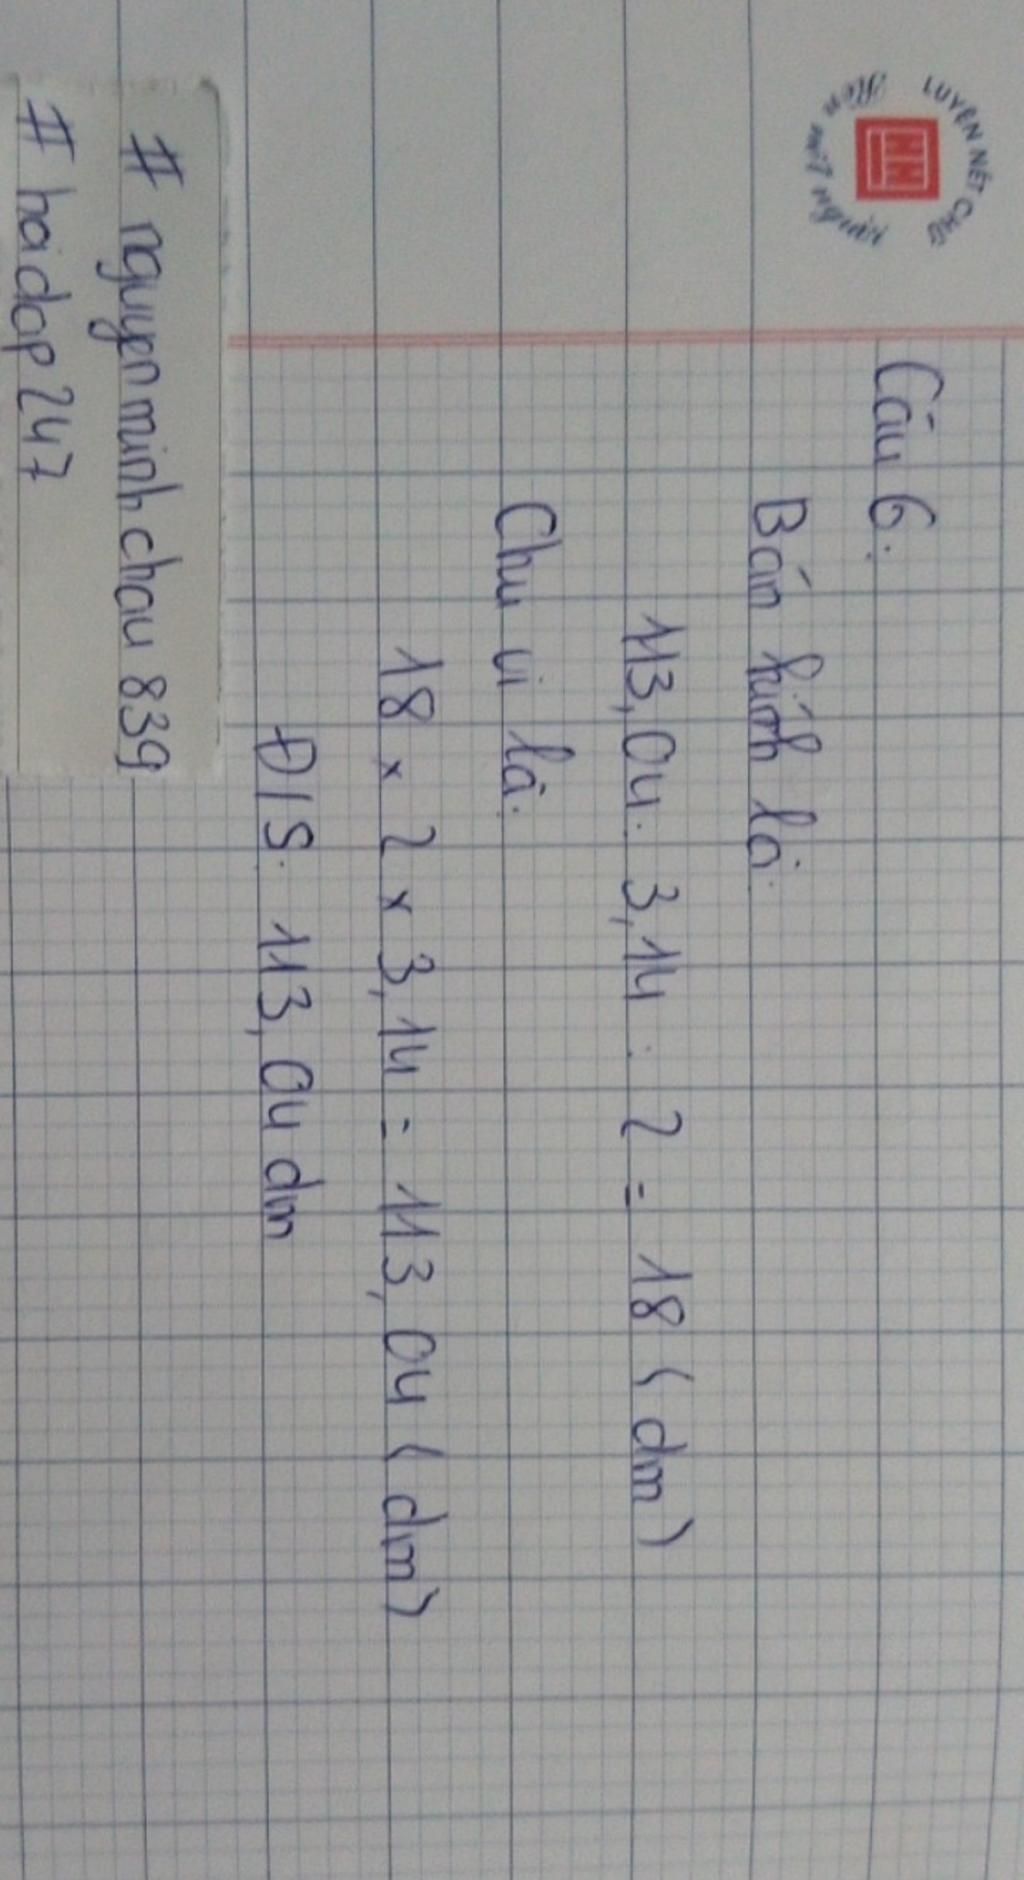 LUYỆN NÉT CHỮ
Rèn nết người
HN
Câu 6:
Bán kính là:
113,04 : 3,14 : 2 = 18 (dm)
Chu vi là:
18 x 2 x 3,14 = 113,04 (dm)
Đ/S: 113,04 dm
# nguyenminhchau839
# hoidap247